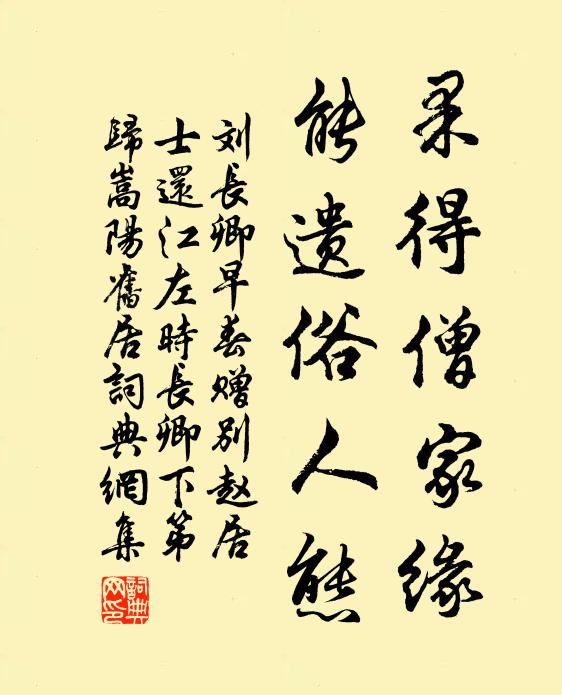 果得僧家缘
能遗俗人態
刘長卿早春赠别赵居
士還江左時長卿下第
歸嵩陽舊居詞典網集
詞典
网印